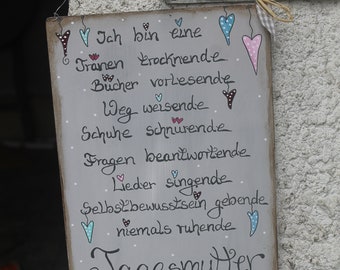 Ich bin eine
Tränen trocknende
Bücher vorlesende
Weg weisende
Schuhe schnürende
Fragen beantwortende
Lieder singende
Selbstbewusstsein gebende
niemals ruhende
Tagesmutter